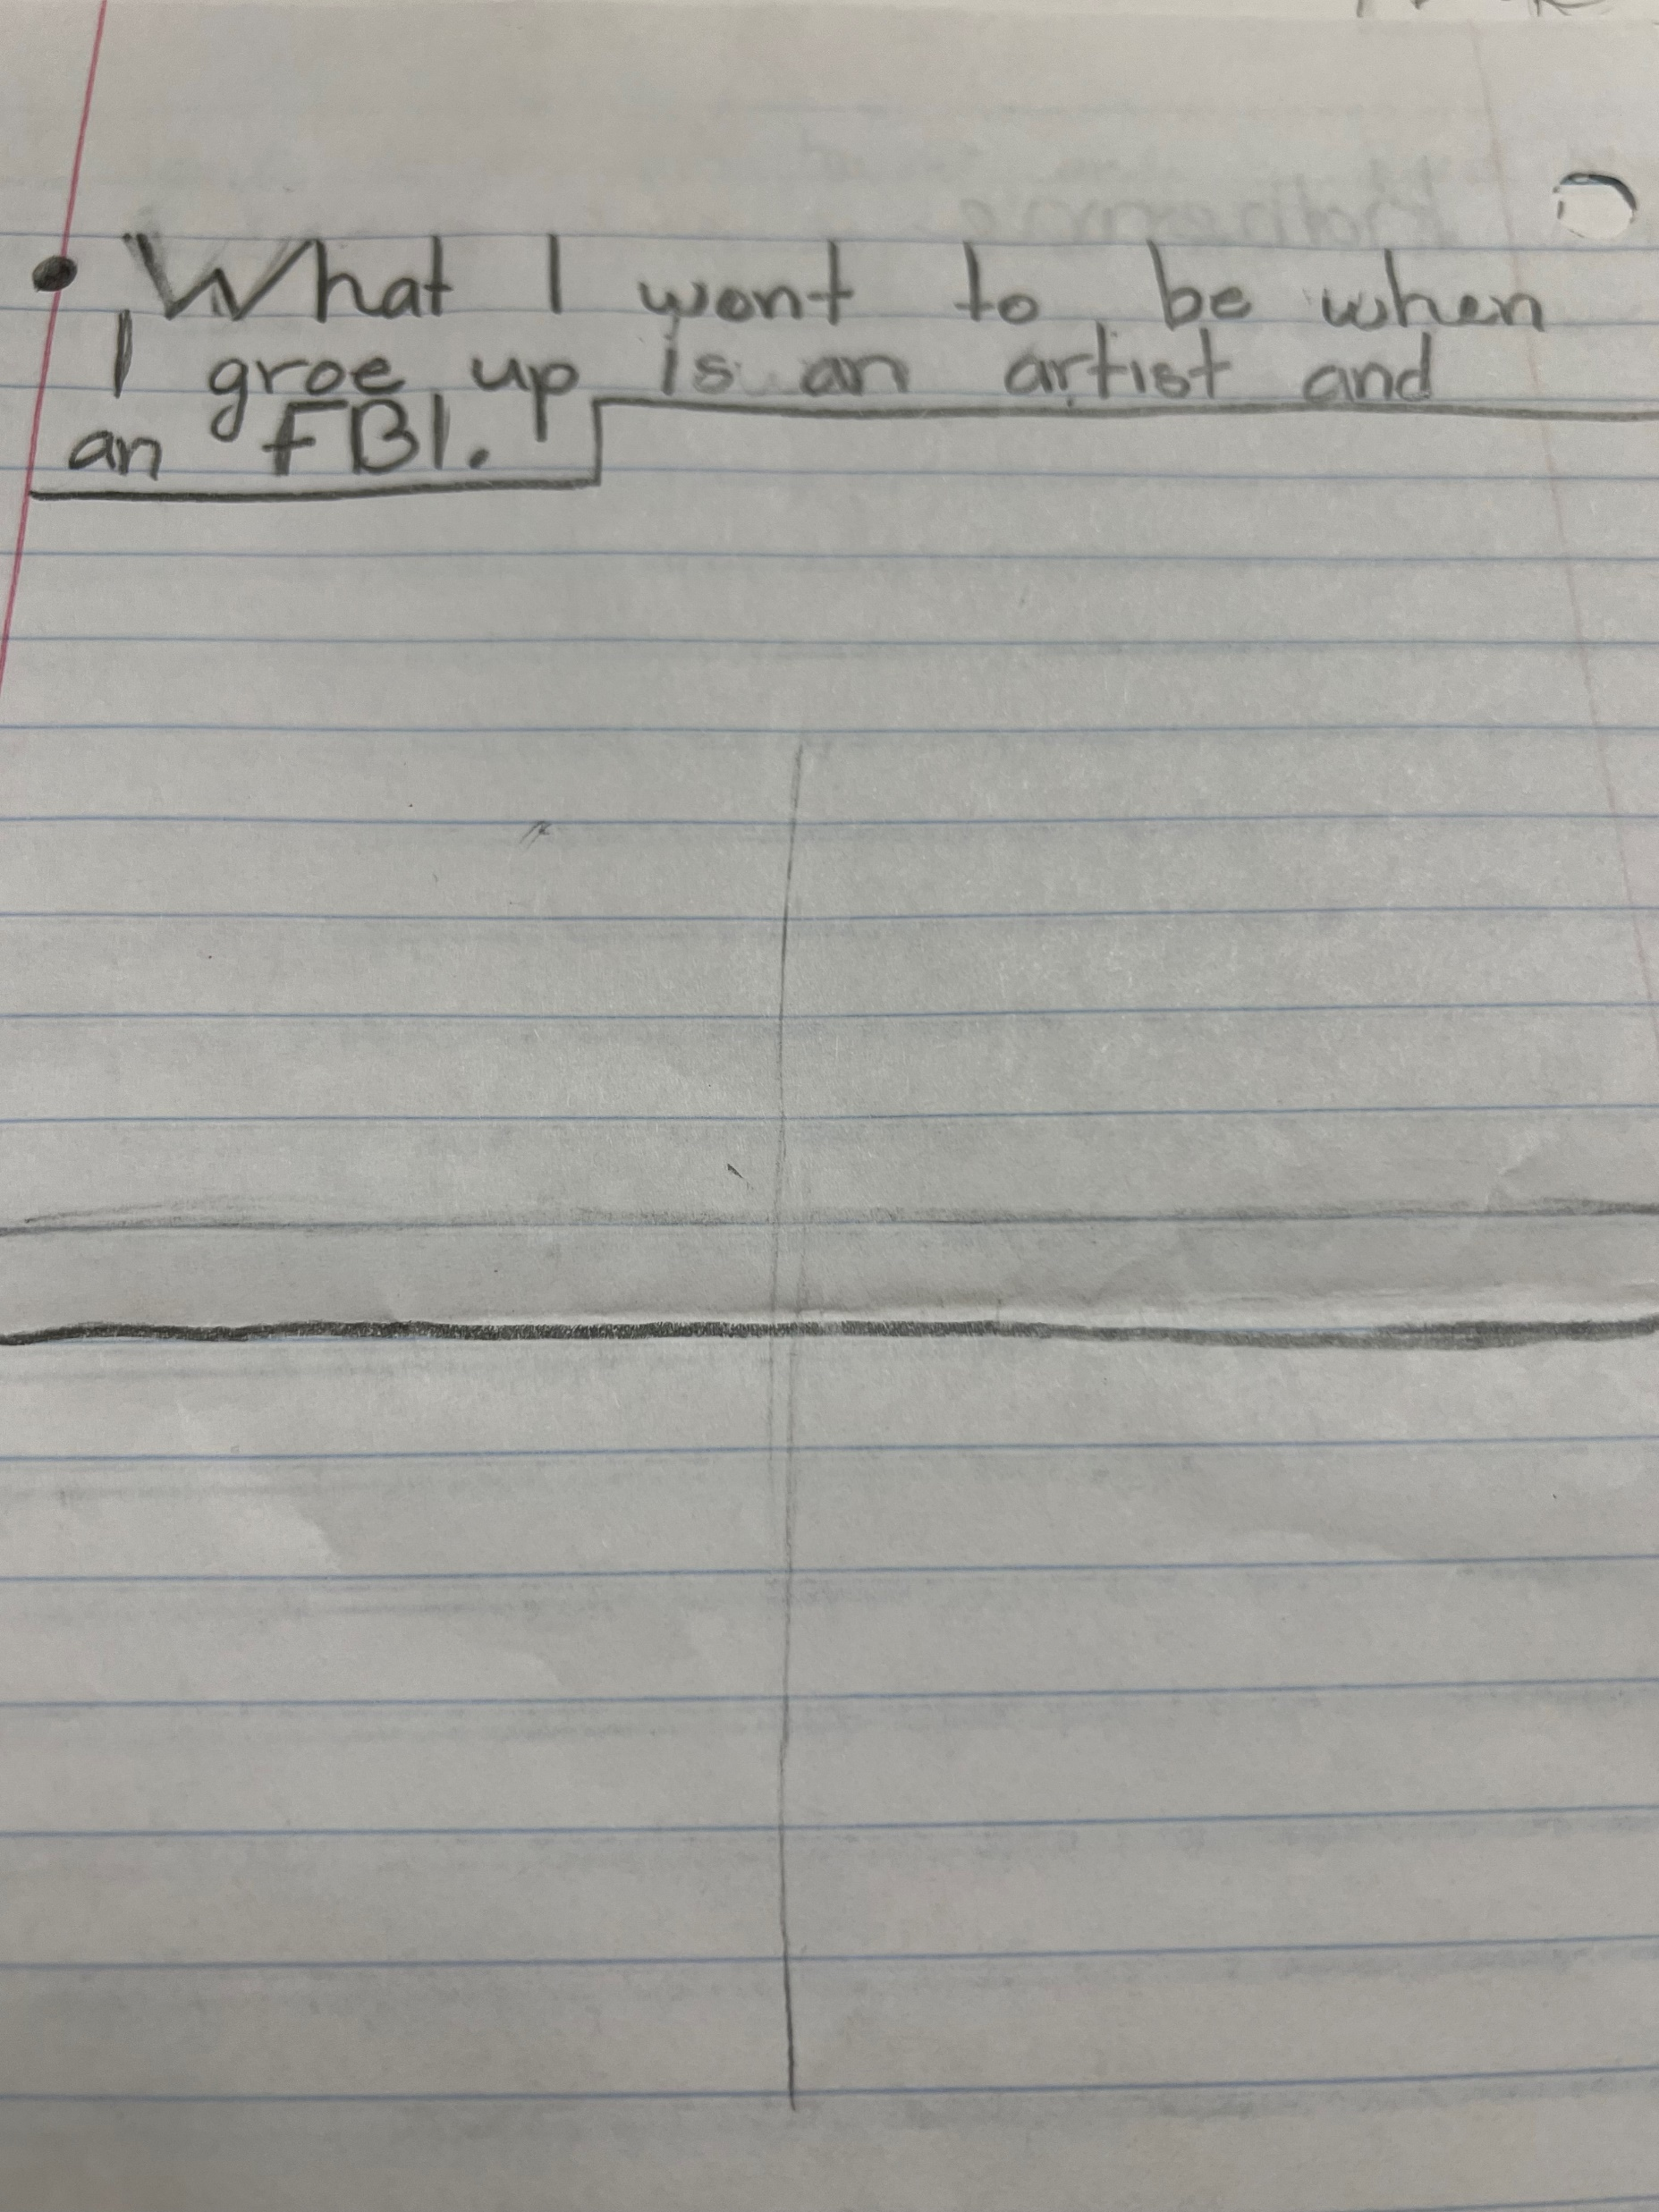 • What I wont to be when
I groe up is an artist and
an FBI.